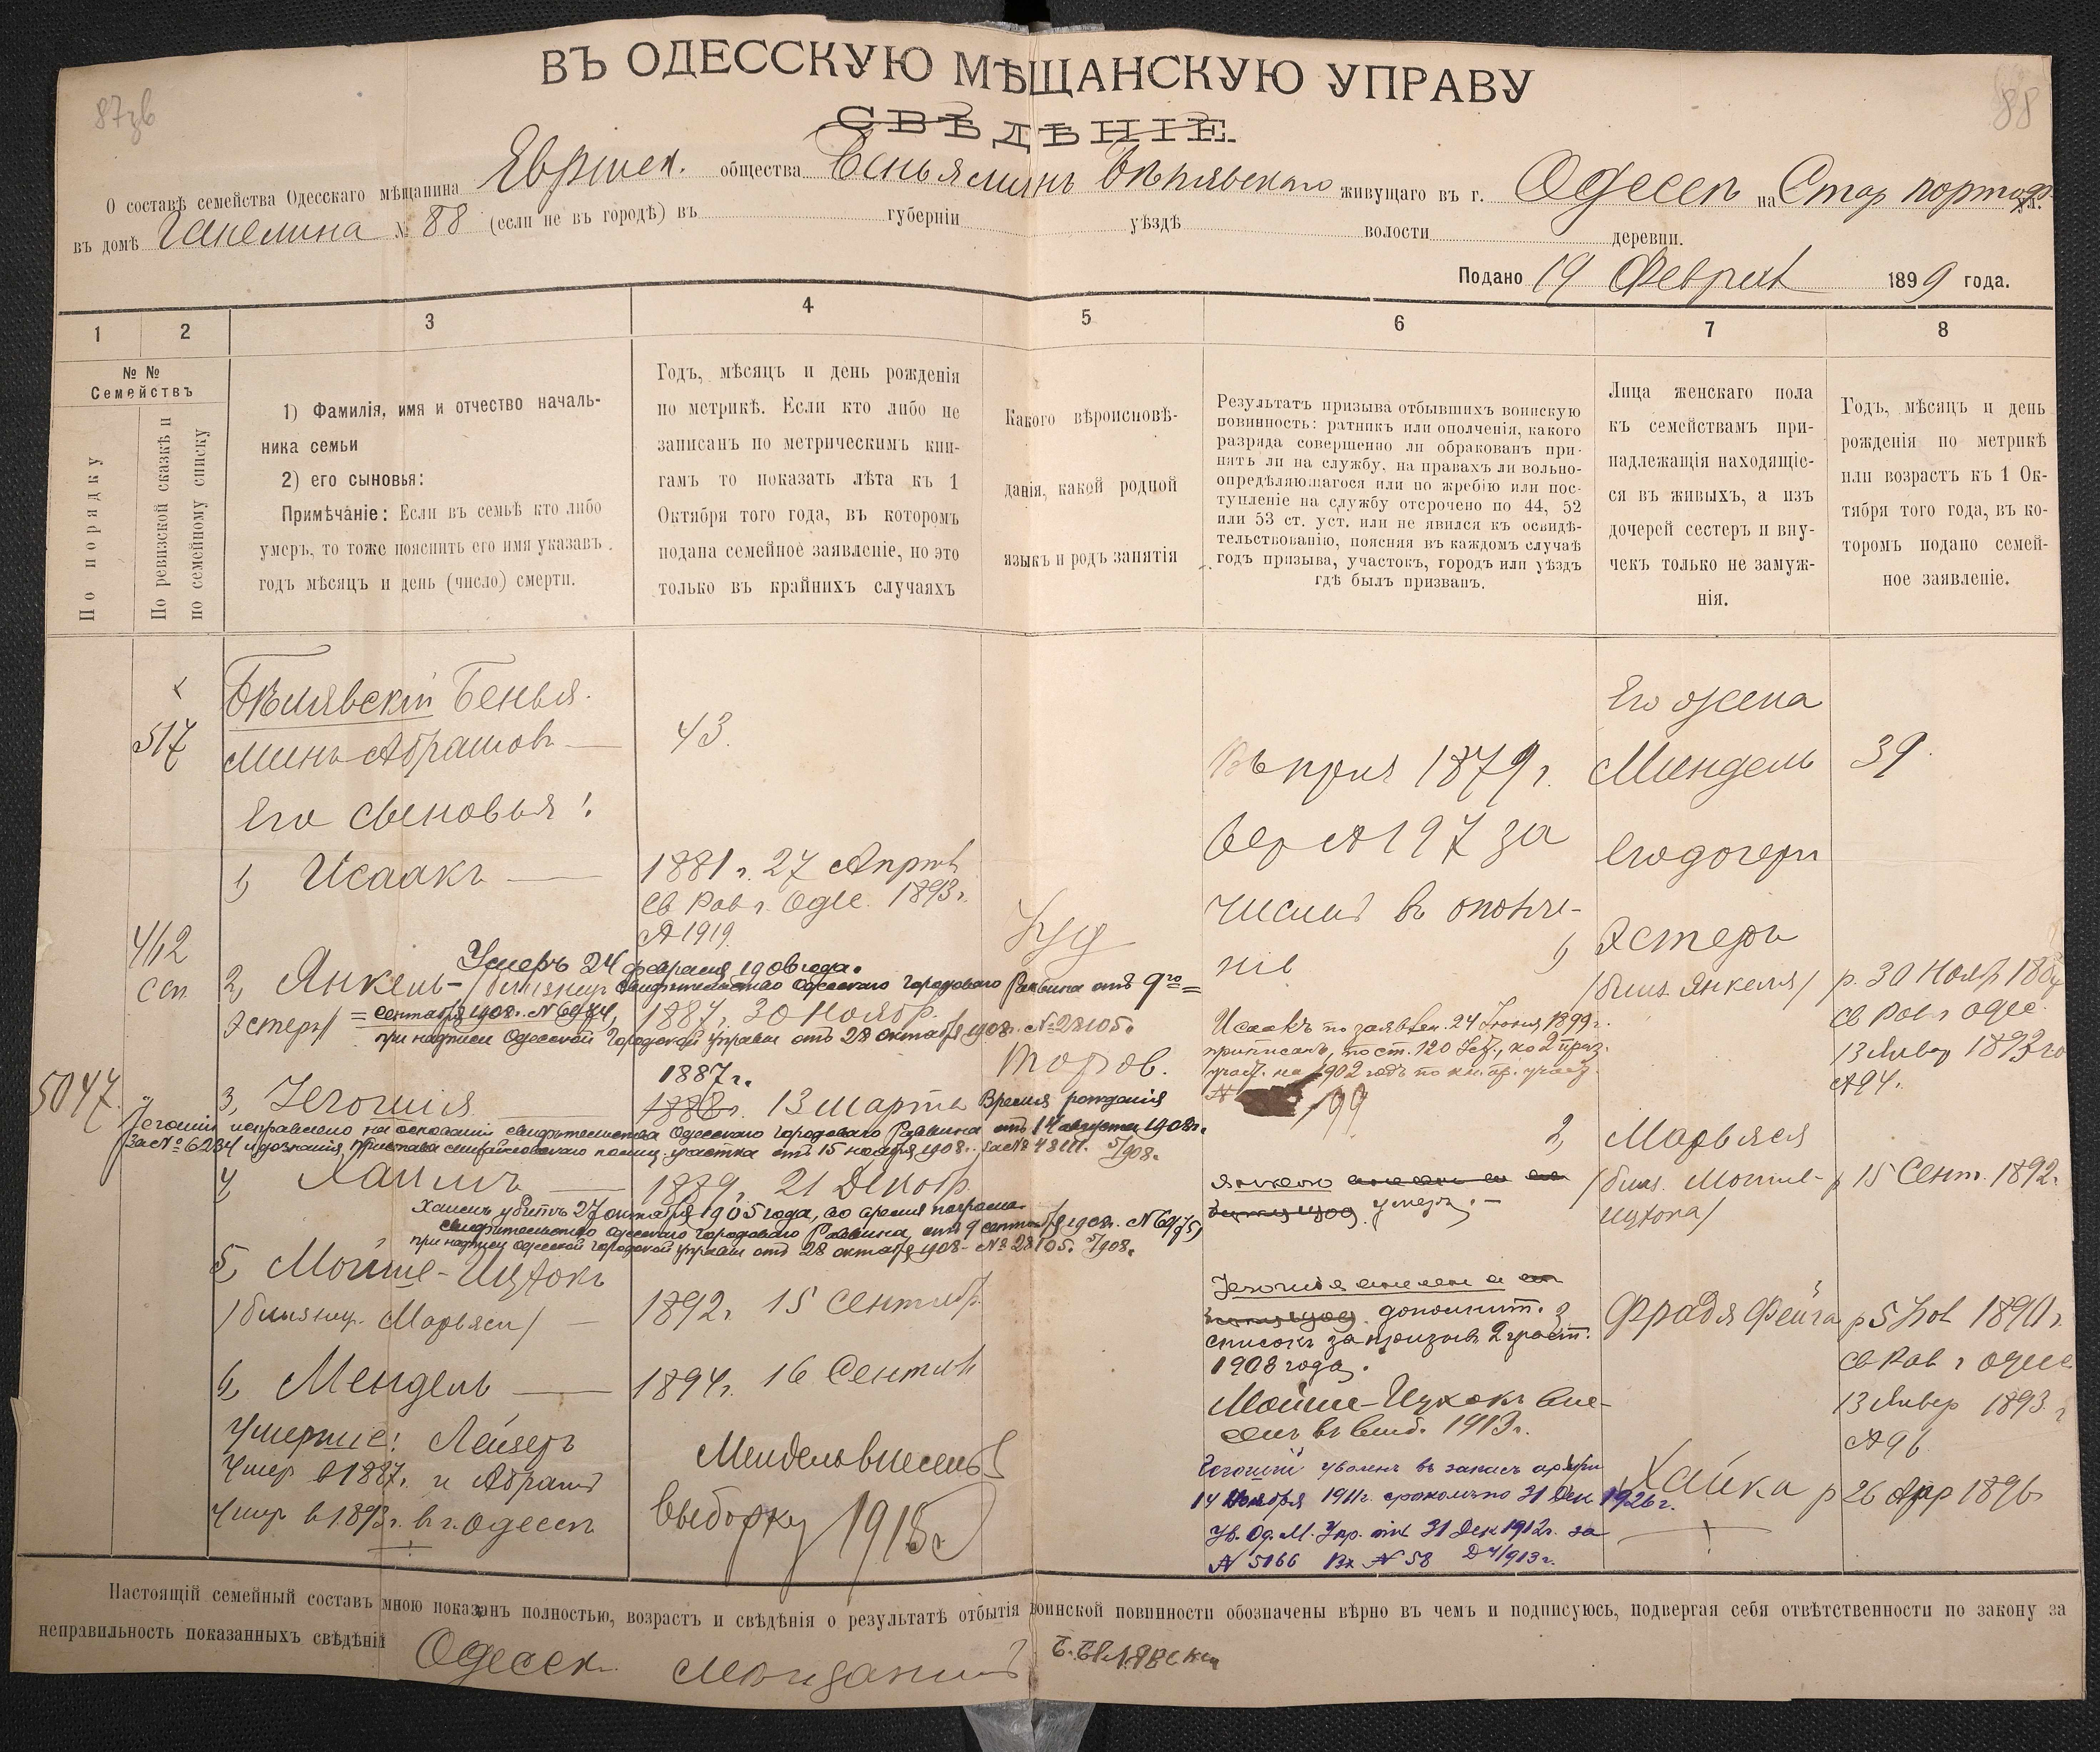 87зв
88
ВЪ ОДЕССКУЮ МѢЩАНСКУЮ УПРАВУ
СВѢДѢНІЕ.
О составѣ семейства Одесскаго мѣщанина Еврейск. общества Беньяминъ Бѣлявскаго живущаго въ г. Одессѣ на Стар портоф. ул.
въ домѣ № 88 (если не въ городѣ) въ губерніи уѣздѣ волости деревни.
Подано 19 Февраля 1899 года.
1 2 3 4 5 6 7 8
№ №
Семействъ
По порядку
По ревизской сказкѣ и
по семейному списку
1) Фамилія, имя и отчество началь-
ника семьи
2) его сыновья:
Примѣчаніе: Если въ семьѣ кто либо
умеръ, то тоже пояснить его имя указавъ
годъ мѣсяцъ и день (число) смерти.
Годъ, мѣсяцъ и день рожденія
по метрикѣ. Если кто либо не
записанъ по метрическимъ кни-
гамъ то показать лѣта къ 1
Октября того года, въ которомъ
подана семейное заявленіе, но это
только въ крайнихъ случаяхъ
Какого вѣроисповѣ-
данія, какой родной
языкъ и родъ занятія
Результатъ призыва отбывшихъ воинскую
повинность: ратникъ или ополченія, какого
разряда совершенно ли обракованъ при-
нятъ ли на службу, на правахъ ли вольно-
опредѣляющагося или по жребію или пос-
тупленіе на службу отсрочено по 44, 52
или 53 ст. уст. или не явился къ освидѣ-
тельствованію, поясняя въ каждомъ случаѣ
годъ призыва, участокъ, городъ или уѣздъ
гдѣ былъ призванъ.
Лица женскаго пола
къ семействамъ при-
надлежащія находящіе-
ся въ живыхъ, а изъ
дочерей сестеръ и вну-
чекъ только не замуж-
нія.
Годъ, мѣсяцъ и день
рожденія по метрикѣ
или возрастъ къ 1 Ок-
тября того года, въ ко-
торомъ подано семей-
ное заявленіе.
517
Бѣлявскій Бенья-
минъ Абрамов
43.
Его сыновья:
1) Исаакъ
1881 г. 27 Апрѣл
Св Рав г. Одес. 1893 г.
№ 1919.
462
ссп
Умеръ 24 февраля 1906 года.
2, Янкель - /близнец
свидѣтельство Одесскаго Городоваго Раввина отъ 9го =
Эстеры/
= сентября 1908 г. № 6974,
1887 г. 30 Ноябр.
при надписи Одесской Городской Управы отъ 28 октября 1908 г. № 28105.
Іуд
торгов.
5047.
3, Іегошія
1887 г.
1888 г. 13 Марта
Время рожденія
Іегошіи исправлено на основаніи свидѣтельства Одесскаго Городоваго Раввина отъ 14 августа 1908 г.
за № 6234 и дознанія Пристава Михайловскаго полиц. участка отъ 15 ноября 1908 г. за № 48111. 5/1908.
4, Хаимъ
1889, 21 Декабр.
Хаимъ убитъ 27 октября 1905 года, во время погрома.
свидѣтельство Одесскаго Городоваго Раввина, отъ 9 сентября 1908 г. № 6975,
при надписи Одесской Городской Управы отъ 28 октября 1908 - № 28105. 5/1908.
5, Мойше-Ицхокъ
/близнец. Марьяси/
1892 г. 15 Сентябр.
6, Мендель
1894 г. 16 Сентяб
Умершіе: Лейзеръ
Умер в 1887 г. и Абрамъ
Умер в 1893 г. в г. Одессѣ
Мендель внесенъ въ
выборку 1915 г.
В призыв 1879 г.
жер № 197 за
числен в ополче-
ніе
Исаакъ по заявлен. 24 Іюня 1899 г.
приписанъ, по ст. 120 Уст., ко 2 приз.
участ. на 1902 годъ по кн. пр. участ.
№ 199
Янкель
умеръ. -
Іегошія
дополнит.
списокъ за призывъ 2 участ.
1908 года.
Мойше-Ицхокъ вне-
сенъ въ выб. 1913 г.
Іегошій уволенъ въ запасъ арміи
14 Ноября 1911 г. срокомъ по 31 Дек. 1926 г.
Ув. Од. М. Упр. отъ 31 Дек 1912 г. за
№ 5166 Вх № 58
Его жена
Миндель
39.
Его дочери
1) Эстеръ
/близ. Янкеля/
р. 30 Нояб 1887
Св Рав г Одес.
13 Январ 1893 го
№ 94.
2, Марьяся
/близ. Мойше-
Ицхока/
р 15 Сент. 1892 г.
3 Фрадя Фейга
р 5 Нов 1890 г.
Св Рав г Одес
13 Январ 1893 г
№ 96
Хайка
р 26 Апр 1896
Настоящій семейный составъ мною показанъ полностью, возрастъ и свѣдѣнія о результатѣ отбытія воинской повинности обозначены вѣрно въ чемъ и подписуюсь, подвергая себя отвѣтственности по закону за
неправильность показанныхъ свѣдѣній Одесск. Мѣщанинъ Б. Бѣлявскій